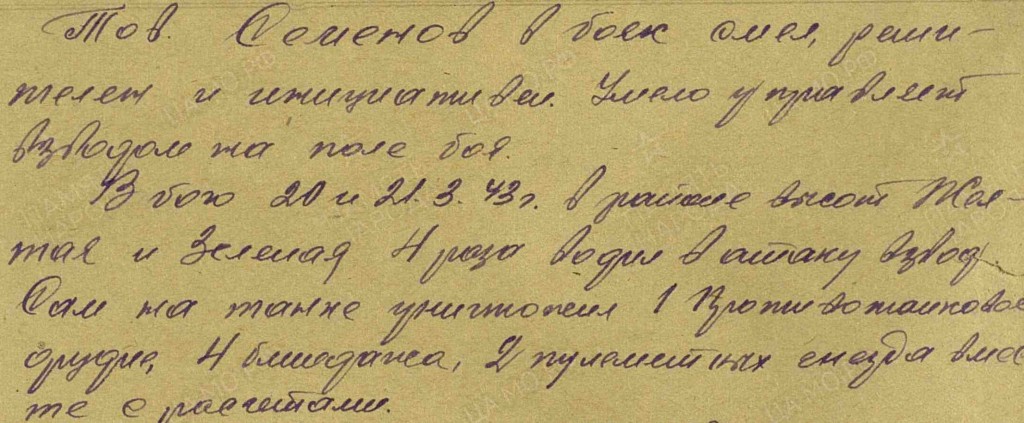 Тов. Семенов в боях смел, реши-
телен и инициативен. Умело управляет
взводом на поле боя.
В бою 20 и 21.3.43г. в районе высот Жел-
тая и Зеленая 4 раза водил в атаку взвод.
Сам на танке уничтожил 1 противотанковое
орудие, 4 блиндажа, 2 пулеметных гнезда вмес
те с расчетами.